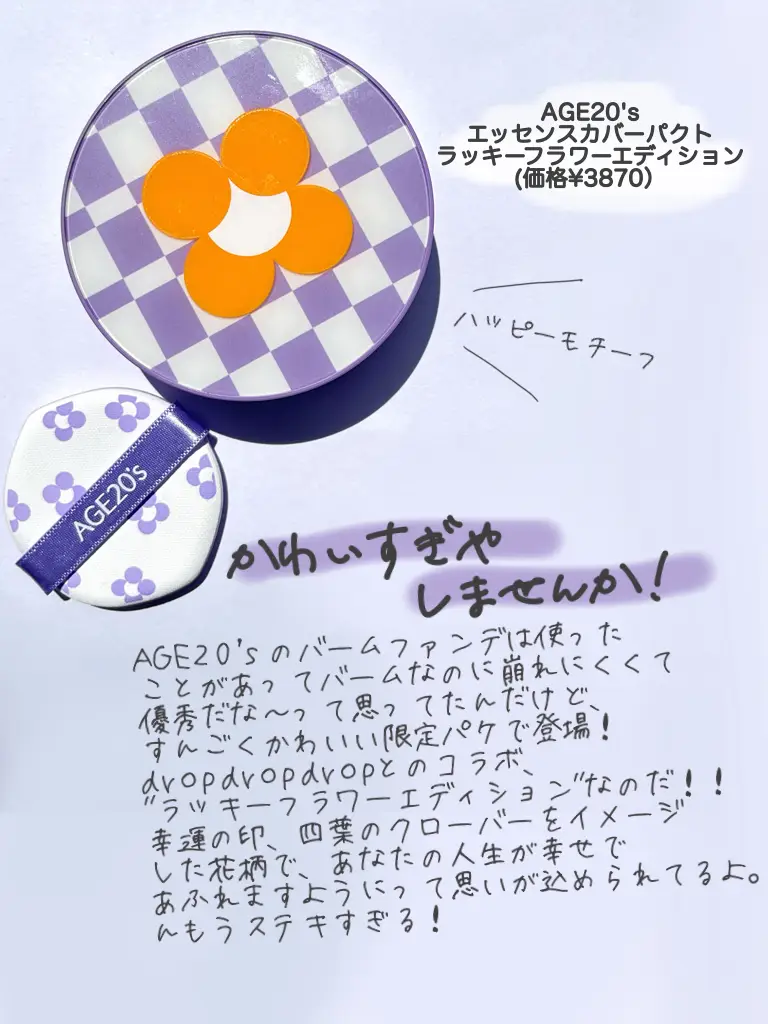 AGE20's
エッセンスカバーパクト
ラッキーフラワーエディション
(価格¥3870)
ハッピーモチーフ
AGE20's
かわいすぎや
しませんか!
AGE20'sのバームファンデは使った
ことがあってバームなのに崩れにくくて
優秀だな〜って思ってたんだけど、
すんごくかわいい限定パケで登場!
dropdropdropとのコラボ、
"ラッキーフラワーエディション"なのだ!!
幸運の印、四葉のクローバーをイメージ
した花柄で、あなたの人生が幸せで
あふれますようにって思いが込められてるよ。
んもうステキすぎる!